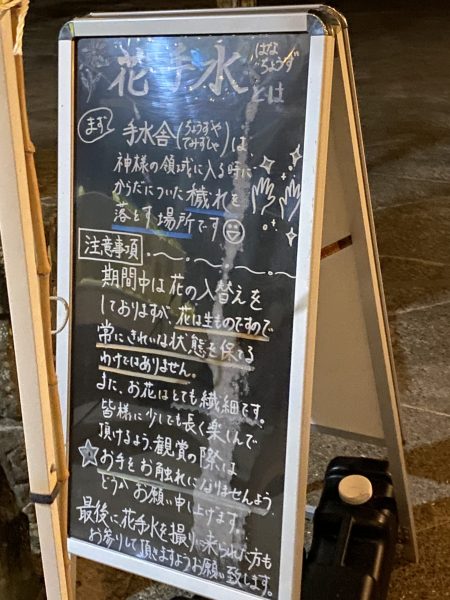 花手水とは
はな
ちょうず
まず
手水舎(ちょうずや
てみずしゃ)は
神様の領域に入る時に
からだについた穢れを
落とす場所です
注意事項
期間中は花の入替えを
しておりますが、花は生ものですので
常にきれいな状態を保てる
わけではありません。
また、お花はとても繊細です。
皆様に少しでも長く楽しんで
頂けるよう、観賞の際は
お手をお触れになりませんよう
どうかお願い申し上げます。
最後に花手水を撮りに来られた方も
お参りして頂きますようお願い致します。